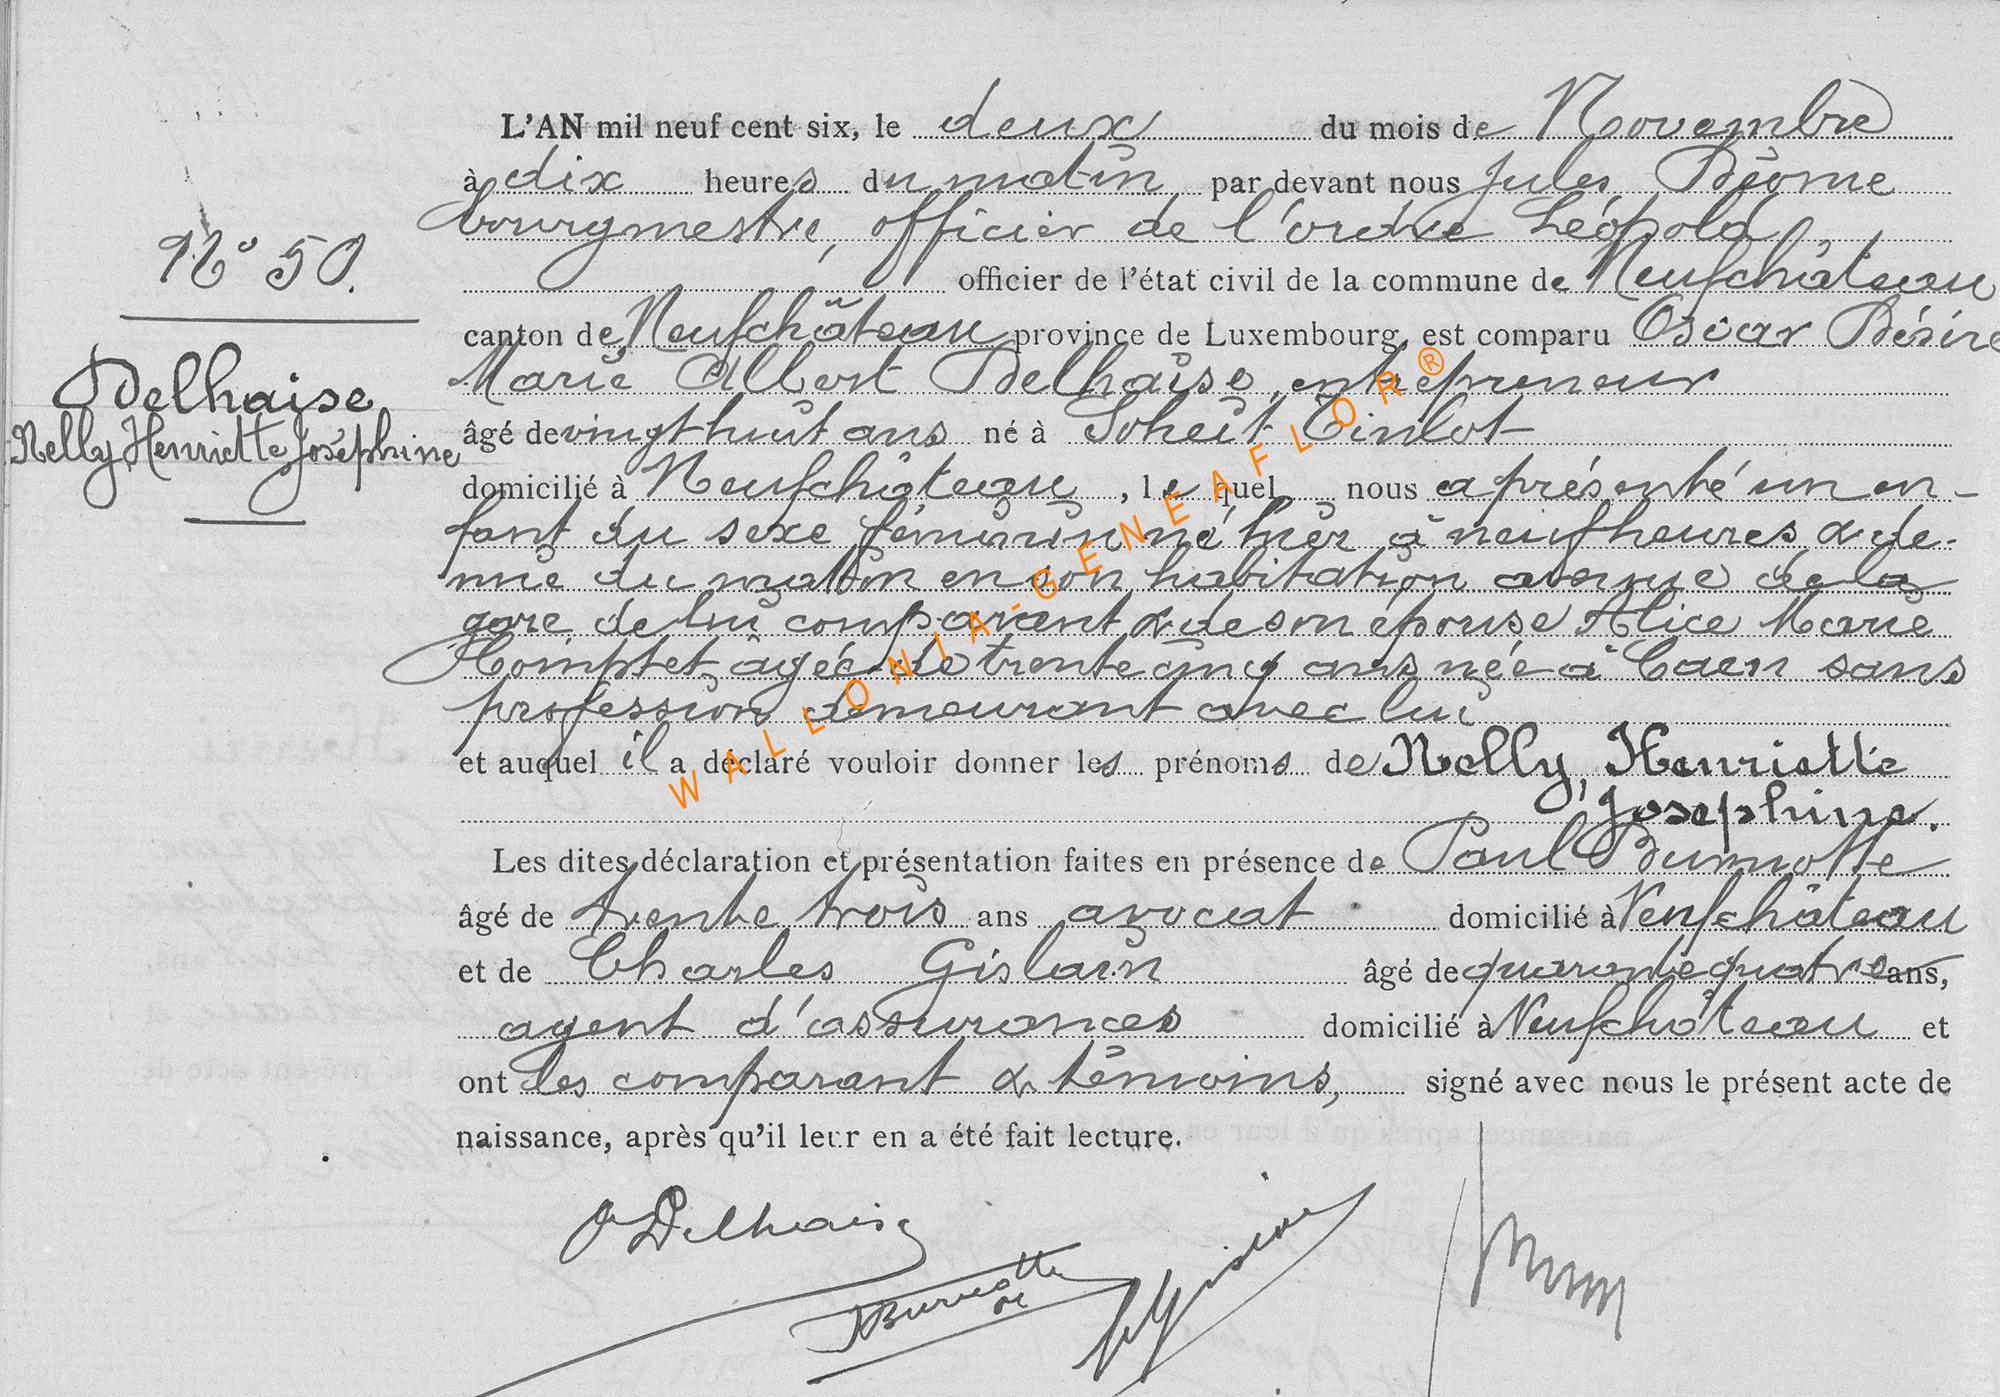 L'AN mil neuf cent six, le deux du mois de Novembre
à dix heures du matin par devant nous Jules
bourgmestre, officier de l'ordre Léopold,
officier de l'état civil de la commune de Neufchâteau
canton de Neufchâteau province de Luxembourg, est comparu Oscar Désiré
Marie Albert Delhaise, entrepreneur
âgé de vingt huit ans né à Soheit Tinlot
domicilié à Neufchâteau, lequel nous a présenté un en-
fant du sexe féminin né hier à neuf heures & de-
mie du matin en son habitation avenue de la
gare, de lui comparant & de son épouse Alice Marie
âgée de trente cinq ans née à Caen sans
profession demeurant avec lui
et auquel il a déclaré vouloir donner les prénoms de Nelly, Henriette
Josephine.
Les dites déclaration et présentation faites en présence de Paul Burnotte
âgé de trente trois ans avocat domicilié à Neufchâteau
et de Charles Gislain âgé de quarante quatre ans,
agent d'assurances domicilié à Neufchâteau et
ont les comparant & témoins, signé avec nous le présent acte de
naissance, après qu'il leur en a été fait lecture.
N° 50.
Delhaise
Nelly, Henriette Joséphine
O Delhaise
Burnotte
WALLONIA-GENEAFLOR®